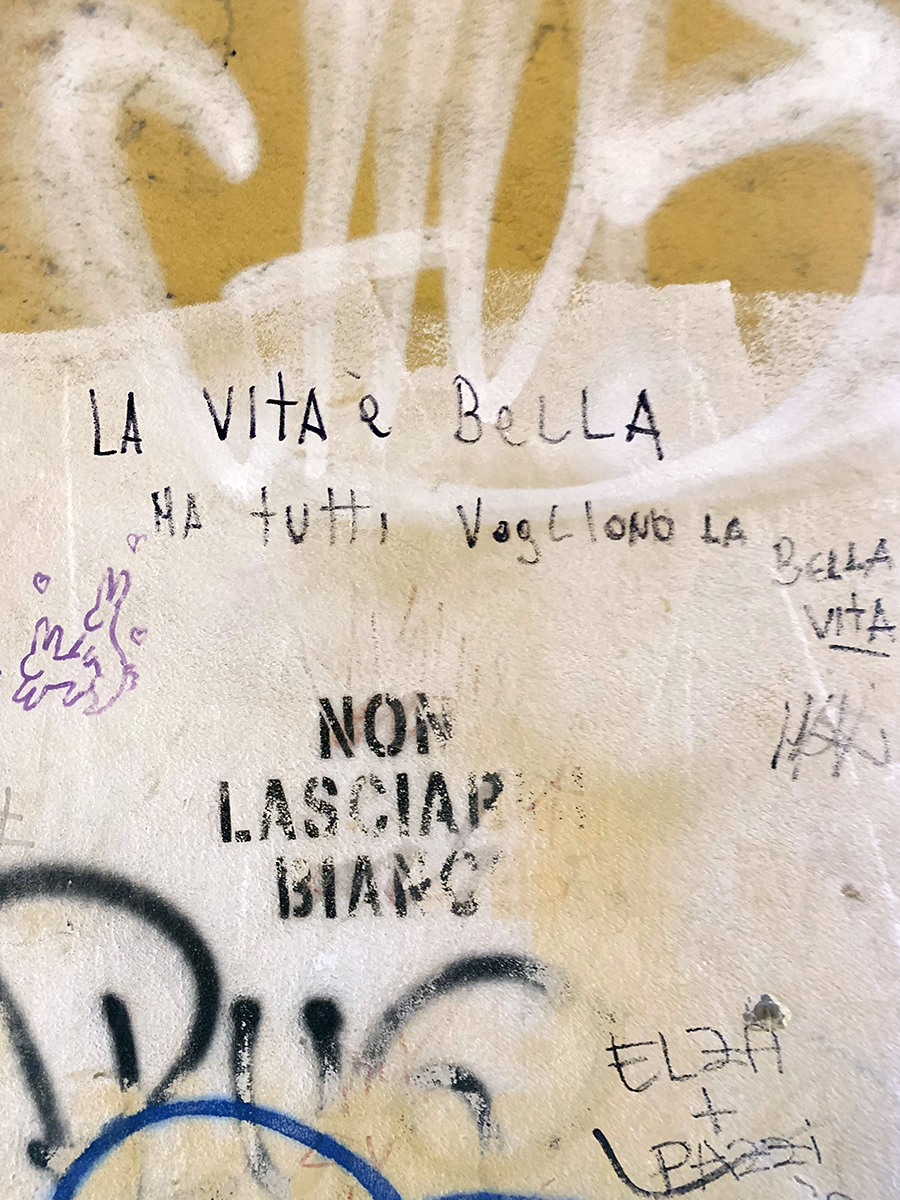 LA VITA è BELLA
MA tutti VOgLIONO LA
BELLA
VITA
NON
LASCIAR
BIANC
ELZA
+
PAZZi